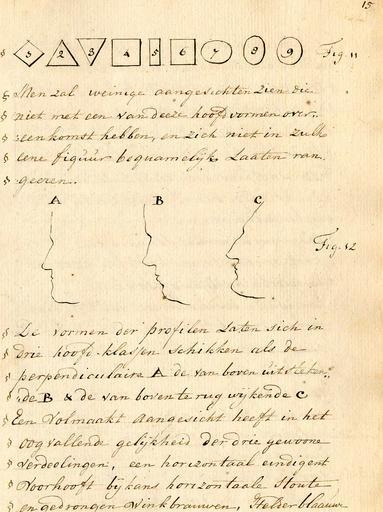 15
1 2 3 4 5 6 7 8 9 Fig. 11
Men zal weinige aangesichten zien die
niet met een van deeze hoofdvormen over-
eenkomst hebben, en zich niet in zulk
eene figuur bequamelijk laaten ran
geeren.
A B C
Fig. 12
De vormen der profilen laten sich in
drie hoofd-klassen schikken als de
perpendiculaire A de van boven uitsteken-
de B & de van boven te rug wijkende C
Een volmaakt aangesicht heeft in het
oog vallende gelijkheid der drie gewoone
verdeelingen, een horizontaal eindigent
voorhooft bijkans horizontaale stoute
en gedrongen winkbrauwen, Helder blaauwe